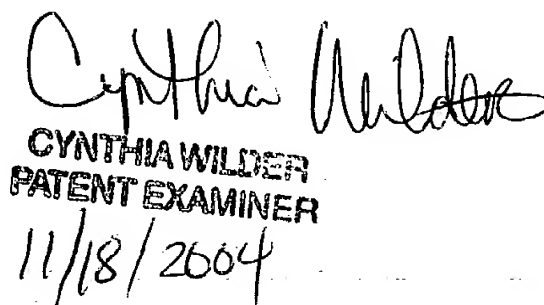 Cynthia Wilder
CYNTHIA WILDER
PATENT EXAMINER
11/18/2004